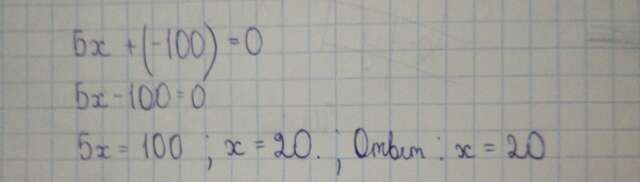 5x + (-100) = 0
5x - 100 = 0
5x = 100 ; x = 20. ; Ответ : x = 20